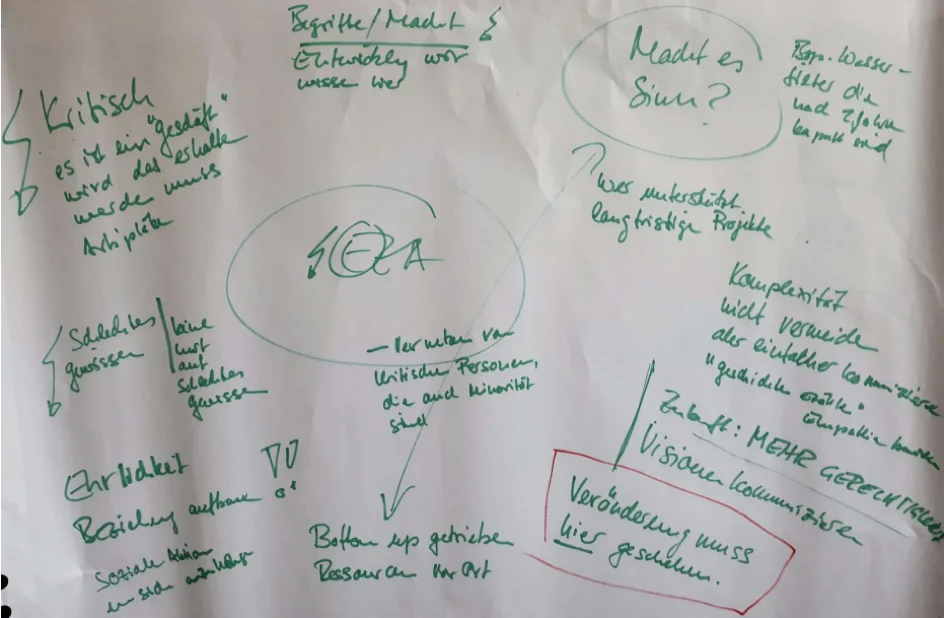 Begriffe/Macht
Entwicklung wir
wisse wer
Macht es
Sinn?
Bsp. Wasser-
filter die
nach 2 Jahren
kaputt sind
Kritisch
es ist ein "geschäft"
wird das erhalte
werde muss
Arbeitsplätze
Wer unterstützt
langfristige Projekte
EZA
Komplexität
nicht vermeide
aber einfacher kommunizieren
"geschichten erzähle"
Empathie
Schlechtes
gewissen
keine
Lust
auf
Schlechtes
Gewissen
- Vernetzen von
kritischen Personen,
die auch Minorität
sind
Zukunft: MEHR GERECHTIGKEIT
Visionen kommunizieren
Ehrlichkeit !!
Beziehung aufbauen
Soziale Aktion
Bottom up getrieben
Ressourcen vor Ort
Veränderung muss
hier geschehen.